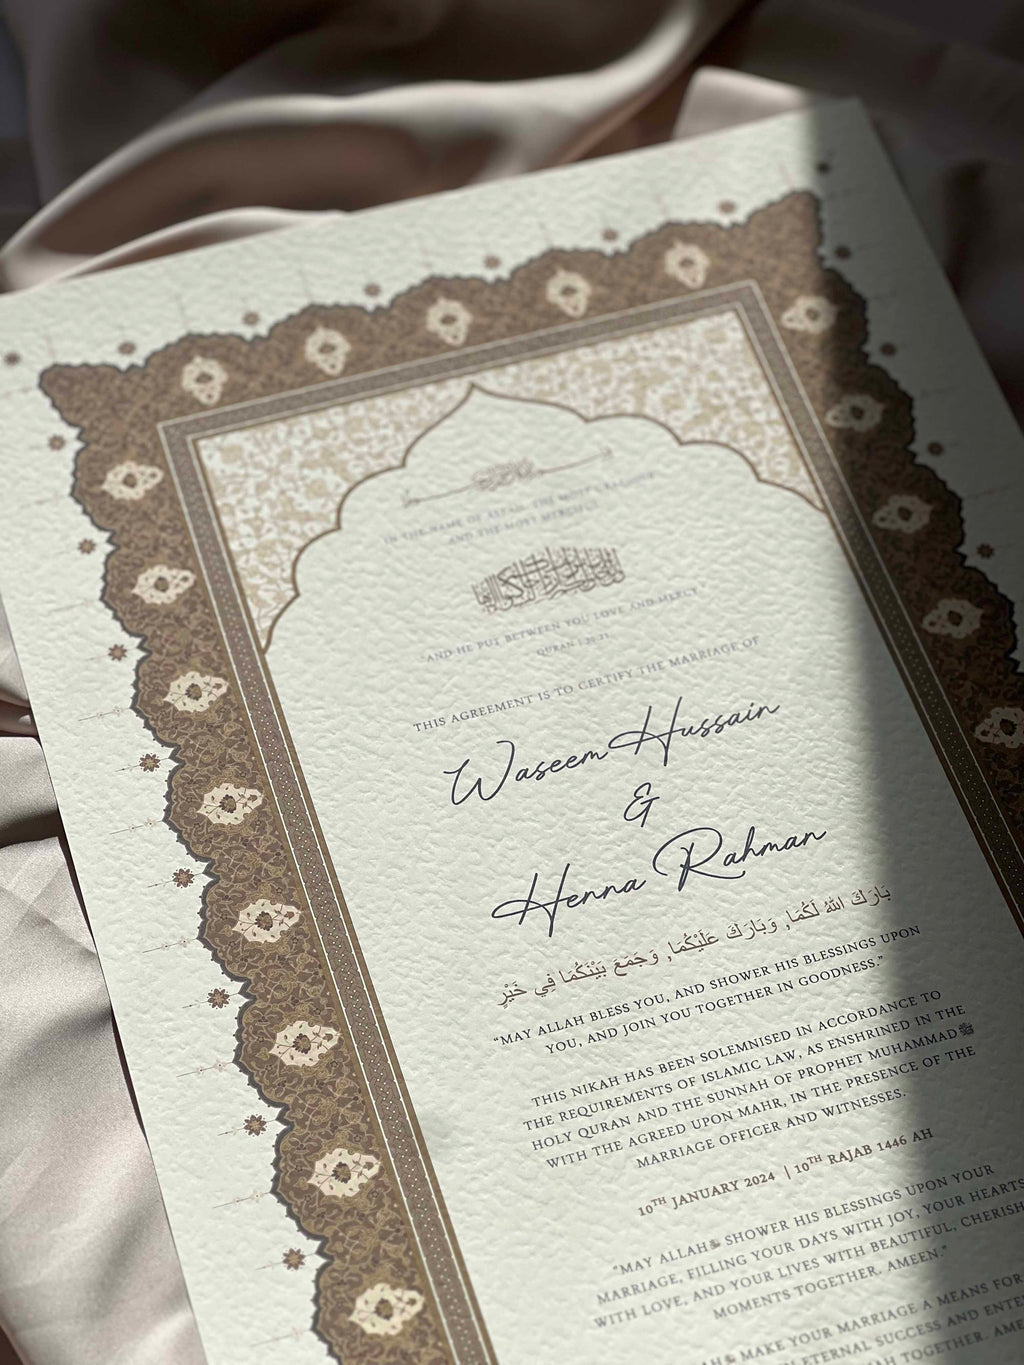 IN THE NAME OF ALLAH, THE MOST GRACIOUS
AND THE MOST MERCIFUL
"AND HE PUT BETWEEN YOU LOVE AND MERCY
QURAN | 30:21
THIS AGREEMENT IS TO CERTIFY THE MARRIAGE OF
Waseem Hussain
&
Henna Rahman
بَارَكَ اللهُ لَكُمَا, وَبَارَكَ عَلَيْكُمَا, وَجَمَعَ بَيْنَكُمَا فِي خَيْرٍ
"MAY ALLAH BLESS YOU, AND SHOWER HIS BLESSINGS UPON
YOU, AND JOIN YOU TOGETHER IN GOODNESS."
THIS NIKAH HAS BEEN SOLEMNISED IN ACCORDANCE TO
THE REQUIREMENTS OF ISLAMIC LAW, AS ENSHRINED IN THE
HOLY QURAN AND THE SUNNAH OF PROPHET MUHAMMAD ﷺ
WITH THE AGREED UPON MAHR, IN THE PRESENCE OF THE
MARRIAGE OFFICER AND WITNESSES.
10TH JANUARY 2024 | 10TH RAJAB 1446 AH
"MAY ALLAH SHOWER HIS BLESSINGS UPON YOUR
MARRIAGE, FILLING YOUR DAYS WITH JOY, YOUR HEARTS
WITH LOVE, AND YOUR LIVES WITH BEAUTIFUL, CHERISH
MOMENTS TOGETHER. AMEEN."
MAKE YOUR MARRIAGE A MEANS FOR
ETERNAL SUCCESS AND ENTE
TOGETHER. AME